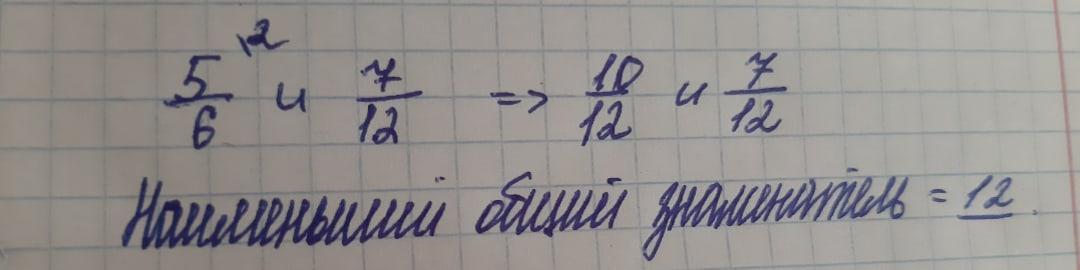 5/6 \2 и 7/12 => 10/12 и 7/12
Наименьший общий знаменатель = 12.